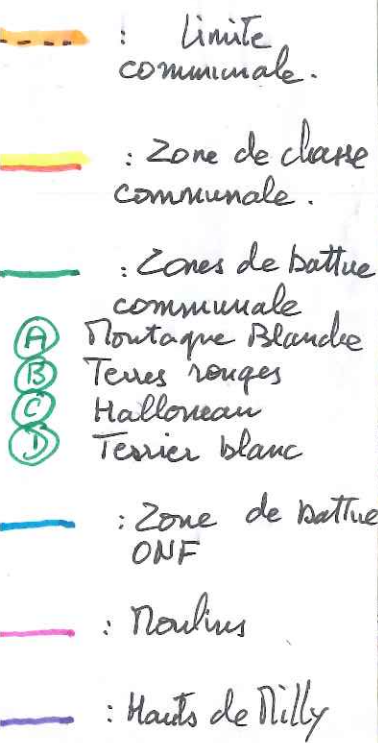 : Limite
communale.
: Zone de chasse
communale.
: Zones de battue
communale
A Montagne Blanche
B Terres rouges
C Halloneau
D Terrier blanc
: Zone de battue
ONF
: Moulins
: Hauts de Milly